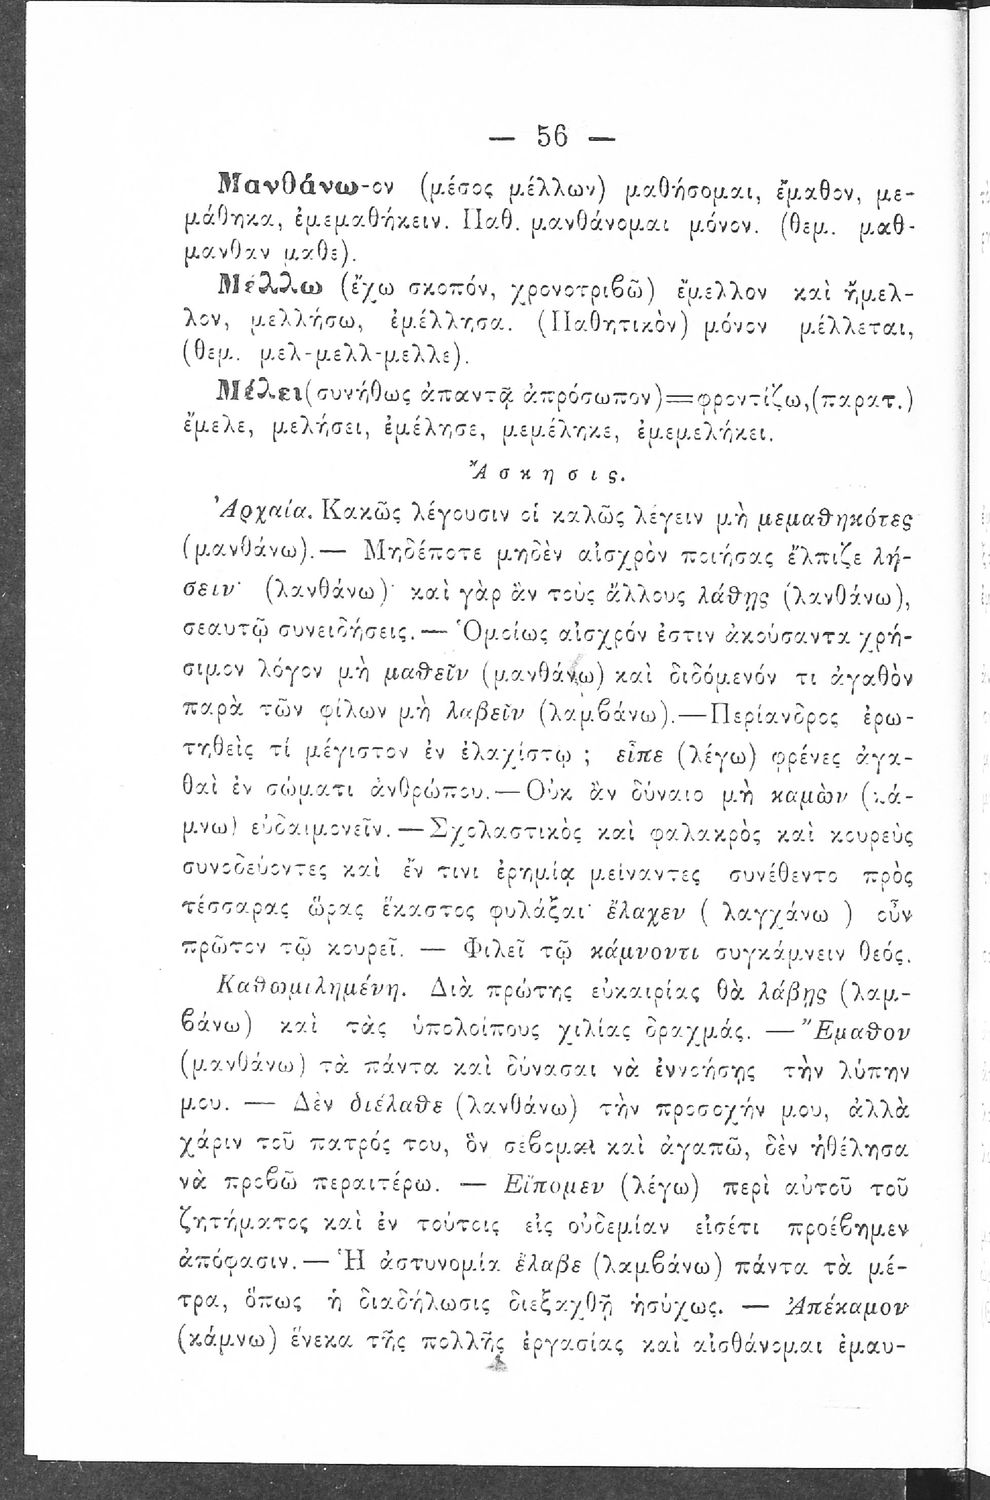 — 56 —
Μανθάνω-ον (μέσος μέλλων) μαθήσομαι, ἔμαθον, με-
μάθηκα, ἐμεμαθήκειν. Παθ. μανθάνομαι μόνον. (θεμ. μαθ-
μανθαν μαθε).
Μέλλω (ἔχω σκοπόν, χρονοτριβῶ) ἔμελλον καὶ ἤμελ-
λον, μελλήσω, ἐμέλλησα. (Παθητικὸν) μόνον μέλλεται,
(θεμ. μελ-μελλ-μελλε).
Μέλει (συνήθως ἀπαντᾷ ἀπρόσωπον)=φροντίζω,(παρατ.)
ἔμελε, μελήσει, ἐμέλησε, μεμέληκε, ἐμεμελήκει.
Ἄσκησις.
Ἀρχαία. Κακῶς λέγουσιν οἱ καλῶς λέγειν μὴ μεμαθηκότες
(μανθάνω).— Μηδέποτε μηδὲν αἰσχρὸν ποιήσας ἔλπιζε λή-
σειν· (λανθάνω)· καὶ γὰρ ἂν τοὺς ἄλλους λάθῃς (λανθάνω),
σεαυτῷ συνειδήσεις.— Ὁμοίως αἰσχρόν ἐστιν ἀκούσαντα χρή-
σιμον λόγον μὴ μαθεῖν (μανθάνω) καὶ διδόμενόν τι ἀγαθὸν
παρὰ τῶν φίλων μὴ λαβεῖν (λαμβάνω).—Περίανδρος ἐρω-
τηθεὶς τί μέγιστον ἐν ἐλαχίστῳ ; εἶπε (λέγω) φρένες ἀγα-
θαὶ ἐν σώματι ἀνθρώπου.—Οὐκ ἂν δύναιο μὴ καμὼν (κά-
μνω) εὐδαιμονεῖν.—Σχολαστικὸς καὶ φαλακρὸς καὶ κουρεὺς
συνοδεύοντες καὶ ἔν τινι ἐρημίᾳ μείναντες συνέθεντο πρὸς
τέσσαρας ὥρας ἕκαστος φυλάξαι· ἔλαχεν ( λαγχάνω ) οὖν
πρῶτον τῷ κουρεῖ. — Φιλεῖ τῷ κάμνοντι συγκάμνειν θεός.
Καθωμιλημένη. Διὰ πρώτης εὐκαιρίας θὰ λάβῃς (λαμ-
βάνω) καὶ τὰς ὑπολοίπους χιλίας δραχμάς. —Ἔμαθον
(μανθάνω) τὰ πάντα καὶ δύνασαι νὰ ἐννοήσῃς τὴν λύπην
μου. — Δὲν διέλαθε (λανθάνω) τὴν προσοχήν μου, ἀλλὰ
χάριν τοῦ πατρός του, ὃν σέβομαι καὶ ἀγαπῶ, δὲν ἠθέλησα
νὰ προβῶ περαιτέρω. — Εἴπομεν (λέγω) περὶ αὐτοῦ τοῦ
ζητήματος καὶ ἐν τούτοις εἰς οὐδεμίαν εἰσέτι προέβημεν
ἀπόφασιν.— Ἡ ἀστυνομία ἔλαβε (λαμβάνω) πάντα τὰ μέ-
τρα, ὅπως ἡ διαδήλωσις διεξαχθῇ ἡσύχως. — Ἀπέκαμον
(κάμνω) ἕνεκα τῆς πολλῆς ἐργασίας καὶ αἰσθάνομαι ἐμαυ-